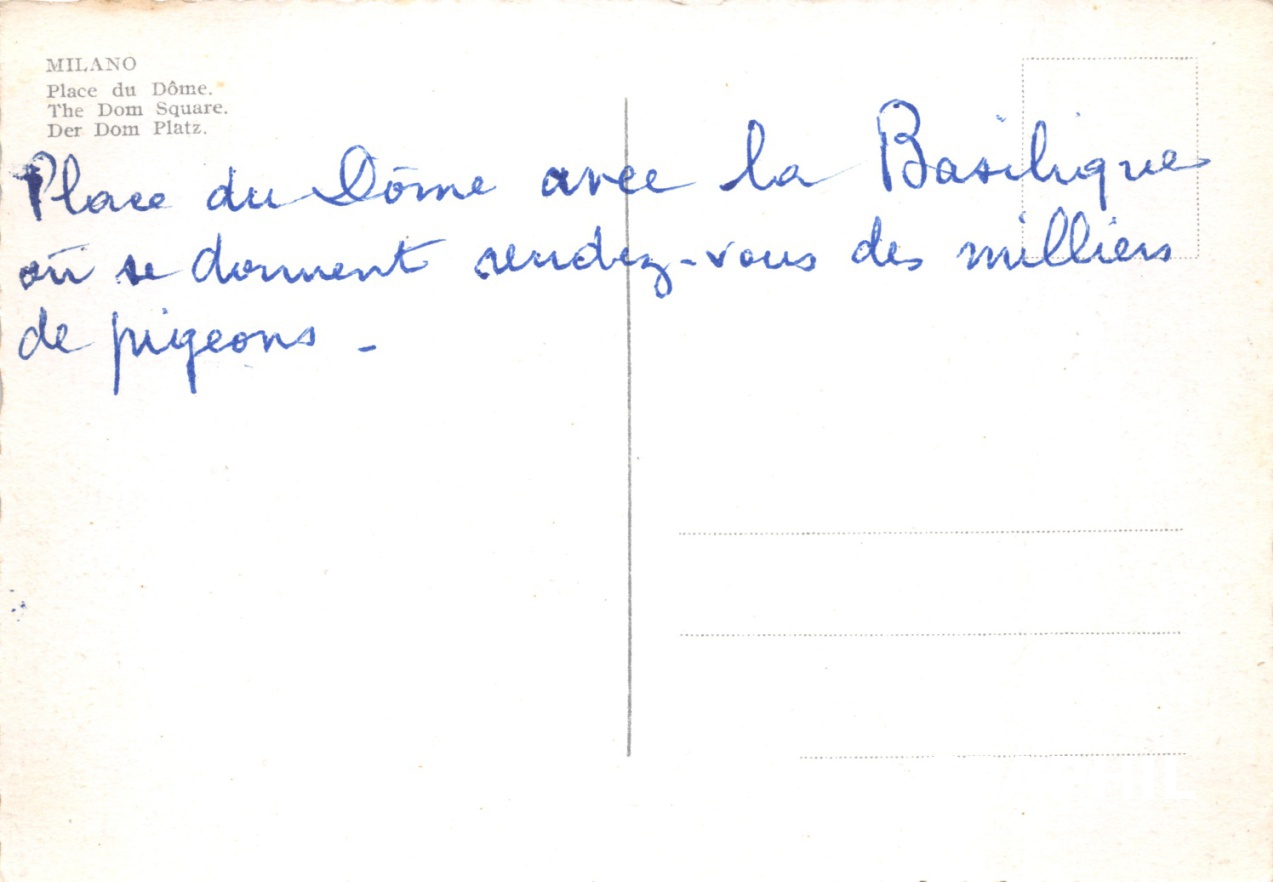 MILANO
Place du Dôme.
The Dom Square.
Der Dom Platz.
Place du Dôme avec la Basilique
où se donnent rendez-vous des milliers
de pigeons -